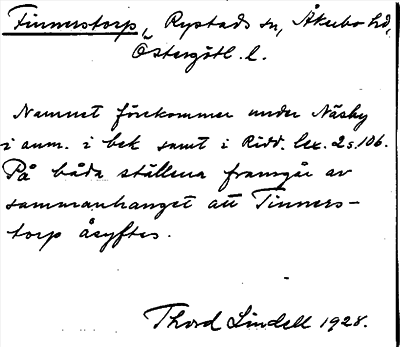 Finnerstorp, Rystads sn, Åkerbo hd,
Östergötl. l.
Namnet förekommer under Näsby
i anm. i bek samt i Ridd. lex. 2 s. 106.
På båda ställena framgår av
sammanhanget att Tinners-
torp åsyftes.
Thord Lindell 1928.